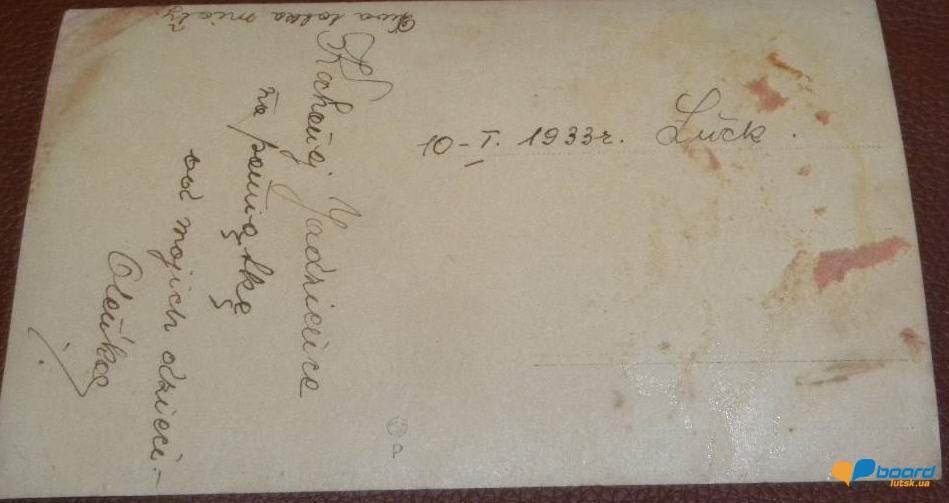 Dwa latka miały
Kochanej Jadzience
na pamiątkę
od mojich dzieci.-
Oleńka
10-I. 1933r. Łuck.
board
lutsk.ua